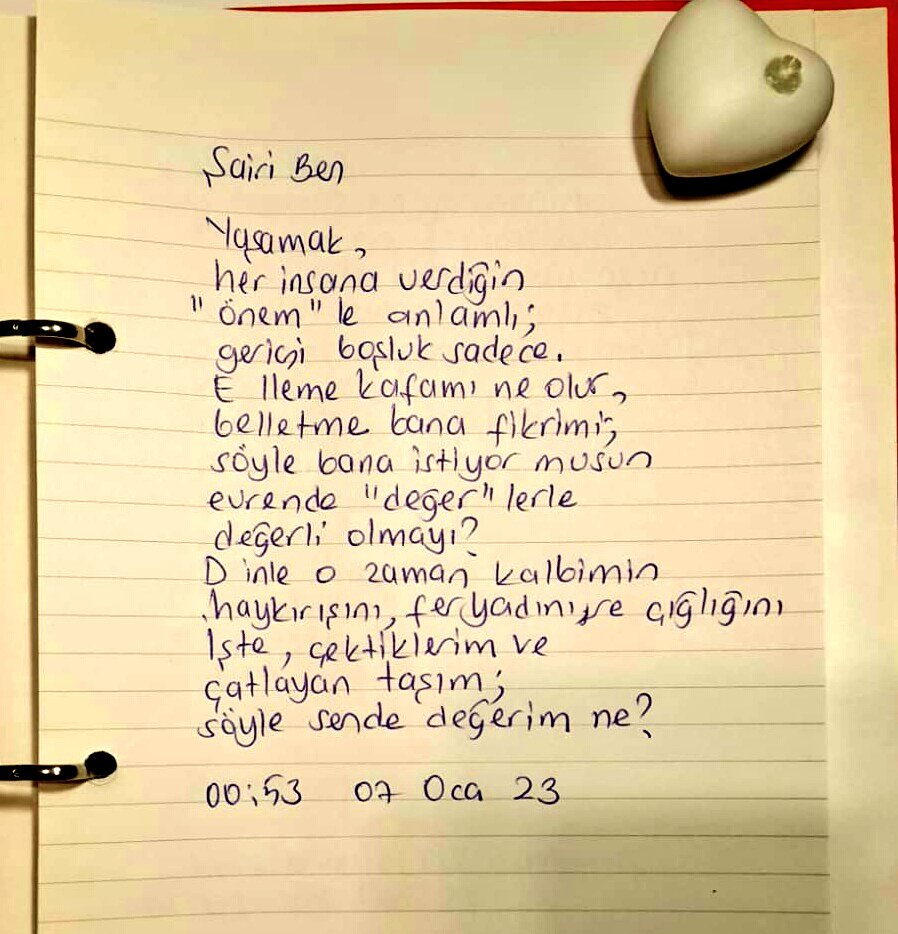 Şairi Ben
Yaşamak,
her insana verdiğin
"önem"le anlamlı;
gerisi boşluk sadece.
Elleme kafamı ne olur,
belletme bana fikrimi;
söyle bana istiyor musun
evrende "değer"lerle
değerli olmayı?
Dinle o zaman kalbimin
haykırışını, feryadını ve çığlığını
İşte, çektiklerim ve
çatlayan taşım;
söyle sende değerim ne?
00:53 07 Oca 23